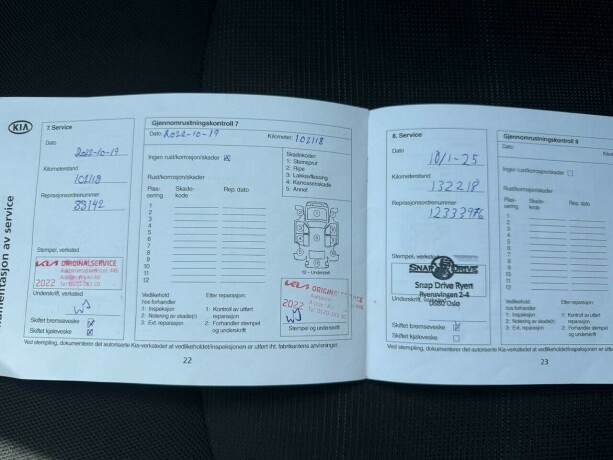 KIA
mentasjon av service
7. Service
Dato
2022-10-19
Kilometerstand
102118
Reprasjonsordrenummer
83142
Stempel, verksted
KIA ORIGINALSERVICE
2022
Underskrift, verksted
WS
Skiftet bremsevæske
Skiftet kjølevæske
Gjennomrustningskontroll 7
Dato: 2022-10-19 Kilometer: 102118
Ingen rust/korrosjon/skader
Rust/korrosjon/skader
Plas-sering Skade-kode Rep. dato
1
2
3
4
5
6
7
8
9
10
11
12
Skadekoder:
1: Steinsprut
2: Ripe
3: Lakkavflassing
4: Karosseriskade
5: Annet
12 - Understell
Vedlikehold
hos forhandler
1: Inspeksjon
2: Notering av skade(r)
3: Evt. reparasjon
Etter reparasjon:
1: Kontroll av utført
reparasjon
2: Forhandler stempel
og underskrift
KIA ORIGINALSERVICE
2022
WS
Stempel og underskrift
Ved stempling, dokumenterer det autoriserte Kia-verkstedet at vedlikeholdet/inspeksjonen er utført iht. fabrikantens anvisninger.
22
8. Service
Dato
10/1-25
Kilometerstand
132218
Reprasjonsordrenummer
Stempel, verksted
SNAP DRIVE
Snap Drive Ryen
Ryensvingen 2-4
0680 Oslo
Underskrift,
Skiftet bremsevæske
Skiftet kjølevæske
Gjennomrustningskontroll 8
Dato:
Ingen rust/korrosjon/skader
Rust/korrosjon/skader
Plas-sering Skade-kode Rep. dato
1
2
3
4
5
6
7
8
9
10
11
12
Vedlikehold
hos forhandler
1: Inspeksjon
2: Notering av skade(r)
3: Evt. reparasjon
Etter reparasjon:
1: Kontroll av utført
reparasjon
2: Forhandler
og underskrift
Ved stempling, dokumenterer det autoriserte Kia-verkstedet at vedlikeholdet/inspeksjonen er utført iht. fa
23